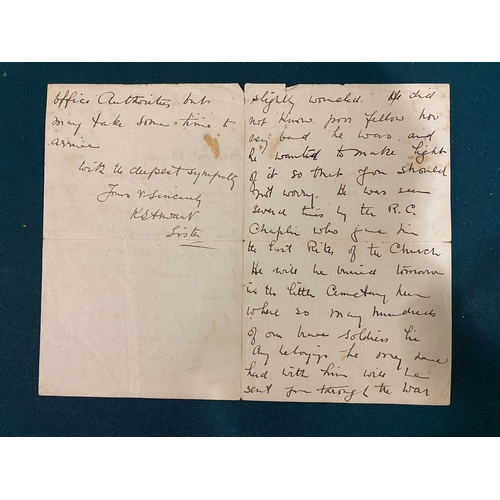 slightly wounded. He did
not know poor fellow how
very bad he was and
he wanted to make light
of it so that you should
not worry. He was seen
several times by the R.C.
Chaplin who gave him
the last Rites of the Church
He will be buried tomorrow
in the little Cemetery here
where so many hundreds
of our brave soldiers lie
Any belongings he may have
had with him will be
sent you through the War
Office Authorities but
may take some time to
arrive
With the deepest sympathy
Yours v Sincerely
Sister